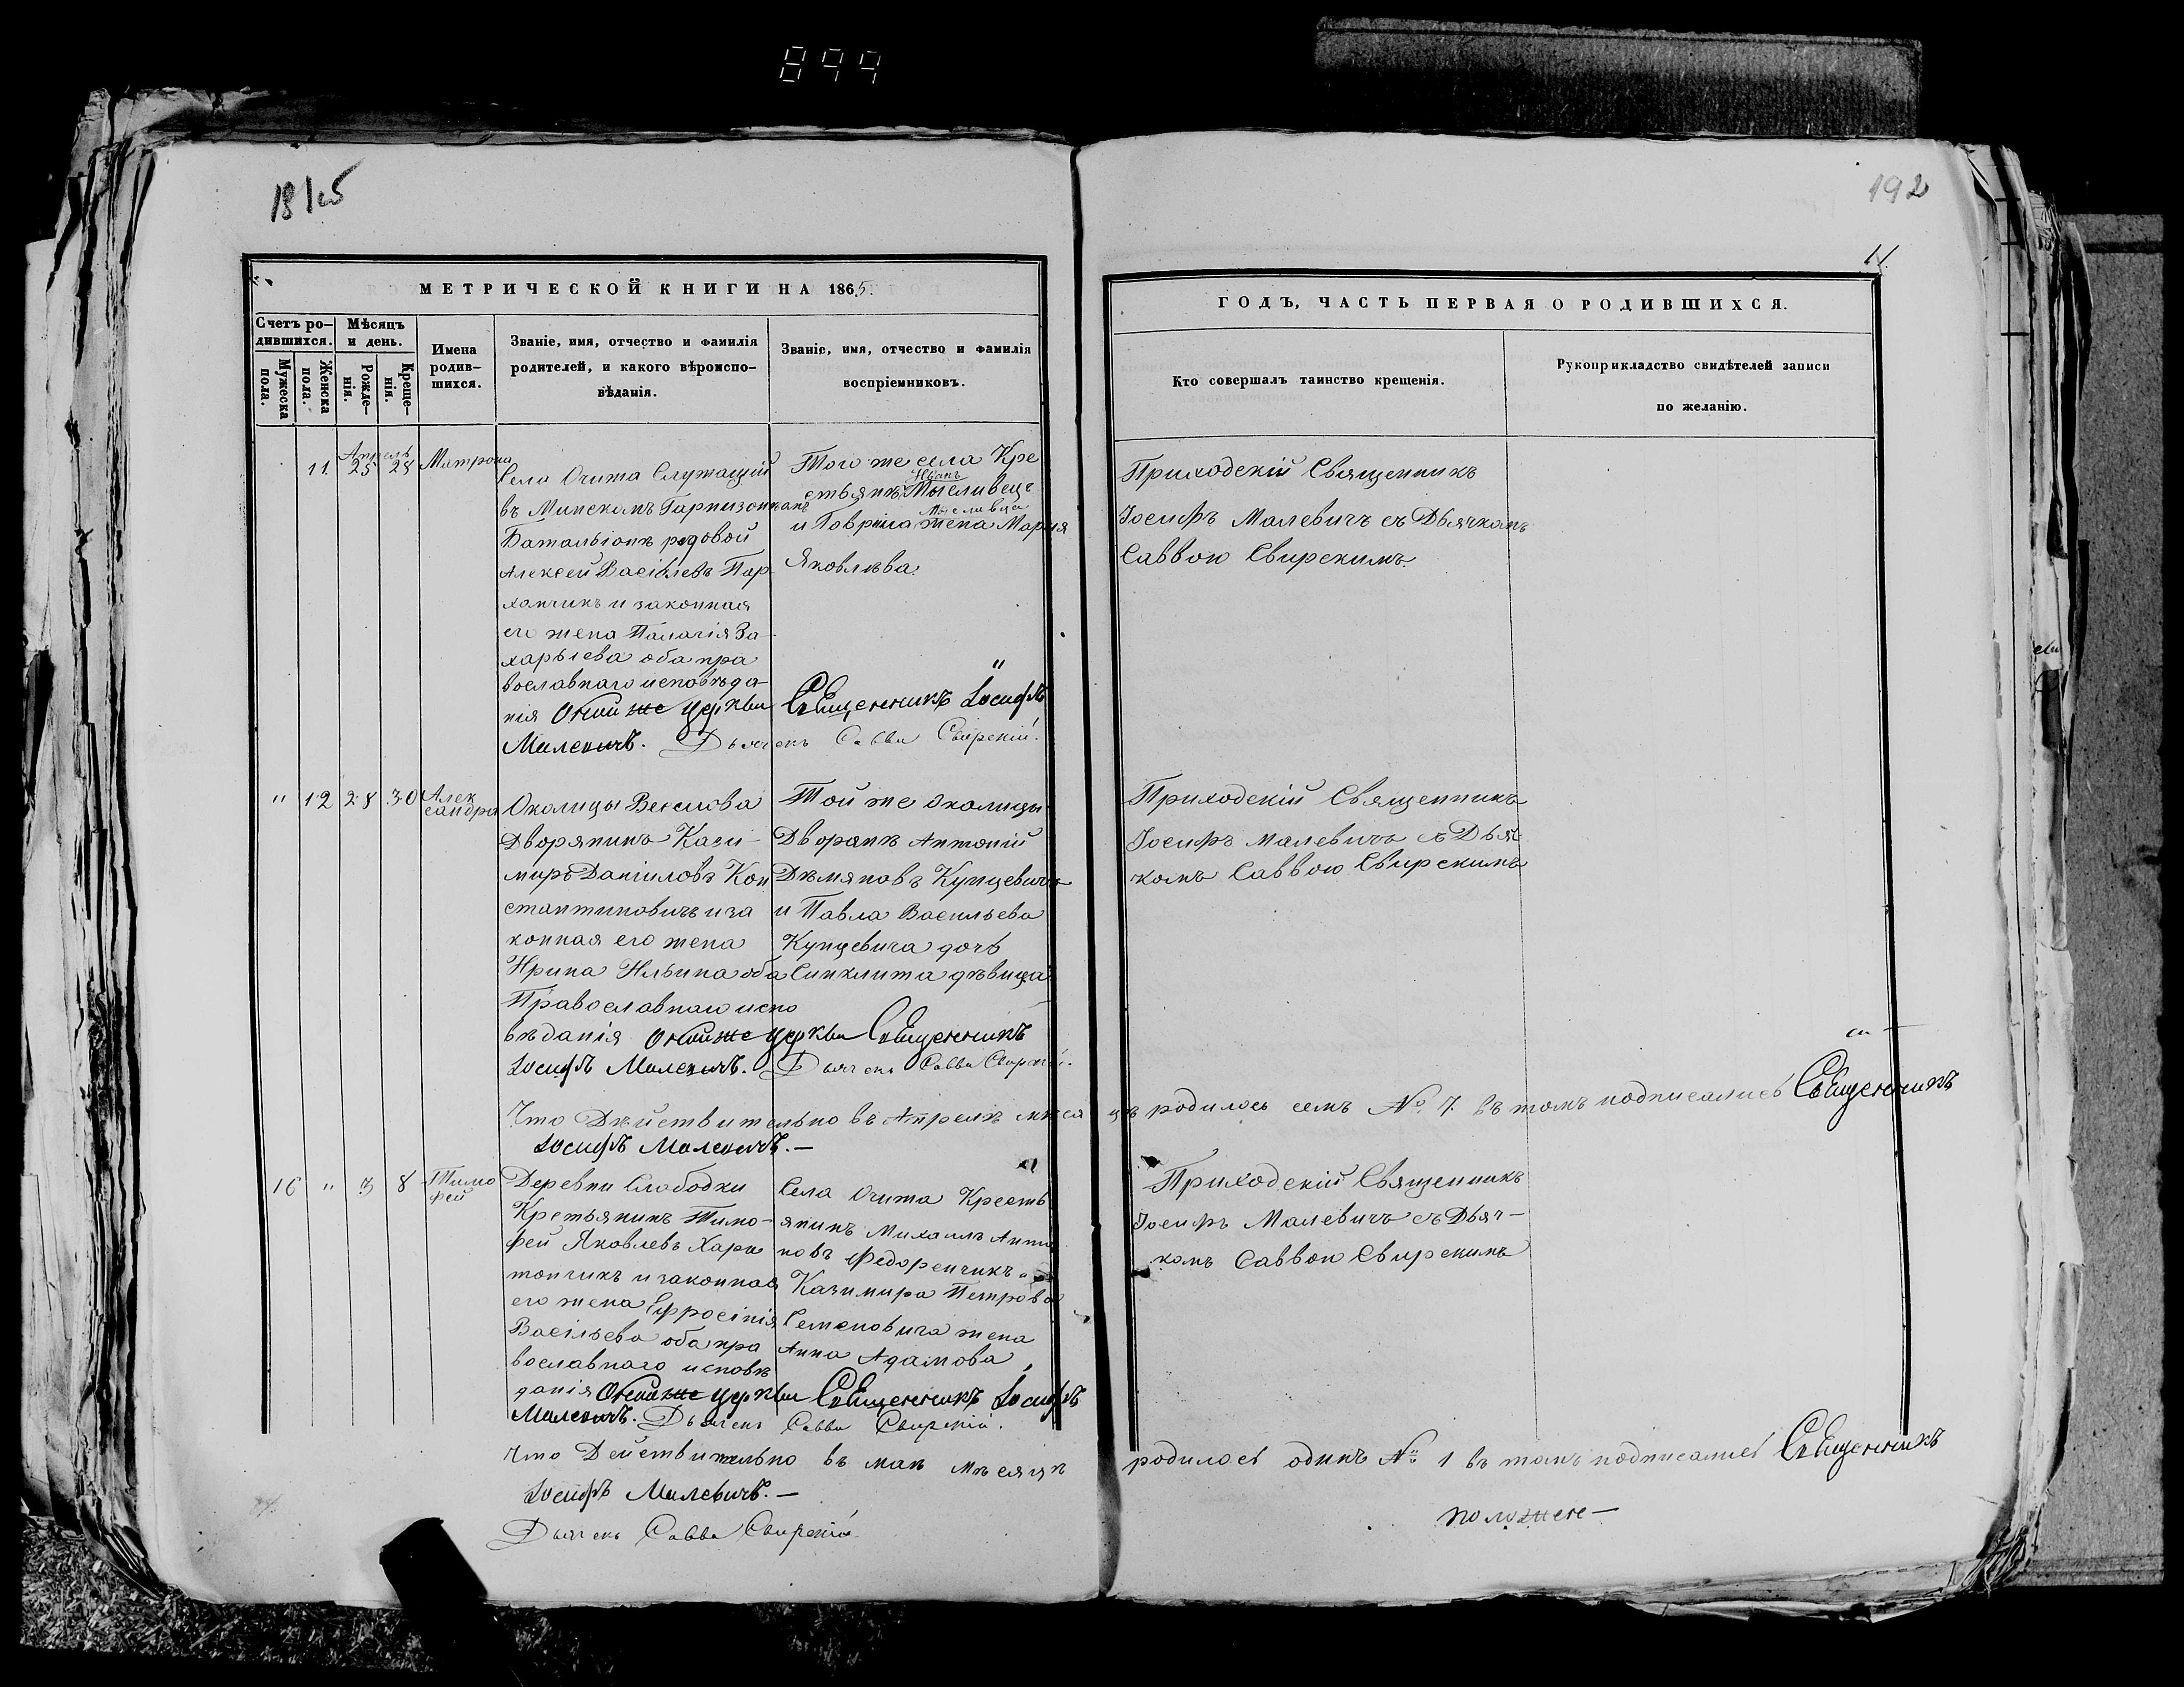 899
1865
192
11
МЕТРИЧЕСКОЙ КНИГИ НА 1865
ГОДЪ, ЧАСТЬ ПЕРВАЯ О РОДИВШИХСЯ.
Счетъ ро-
дившихся.
Мужеска
пола.
Женска
пола.
Мѣсяцъ
и день.
Рожде-
нія.
Креще-
нія.
Имена
родив-
шихся.
Званіе, имя, отчество и фамилія
родителей, и какого вѣроиспо-
вѣданія.
Званіе, имя, отчество и фамилія
воспріемниковъ.
Кто совершалъ таинство крещенія.
Рукоприкладство свидѣтелей записи
по желанію.
Апрель
11 25 28 Матрона
Села Очита Служащій
въ Минскомъ Гарнизонномъ
Батальіонѣ редовой
Алексей Васілевъ Пар
хончикъ и законная
его жена Палагія За-
харьева оба пра
вославнаго исповѣда-
нія Оной же церкви Священникъ Іосифъ
Малевичъ. Дьячекъ Савва Свирскій.
Того же села Кре
стьянинъ Иванъ Мысливецъ
и Гаврила Мысливца жена Марія
Яковлѣва.
Приходскій Священникъ
Іосифъ Малевичъ съ Дьячкомъ
Саввою Свирскимъ.
" 12 28 30 Алек
сандра
Околицы Веселова
Дворянинъ Кази-
миръ Данііловъ Кон
стантиновичъ и за
конная его жена
Ирина Ильина оба
Православнаго испо
вѣданія Оной же церкви Священникъ
Іосифъ Малевичъ. Дьячекъ Савва Свирскій.
Той же Околицы
Дворанѣ Антоній
Дѣмяновъ Купцевичъ
и Павла Васильева
Купцевича дочь
Синклита дѣвица
Приходскій Священникъ
Іосифъ Малевичъ съ Дьяч
комъ Саввою Свирскимъ
Что Дѣйствительно въ Апрелѣ мѣсяцѣ родилось семь № 7. въ томъ подписались Священникъ
Іосифъ Малевичъ.—
16 " 3 8 Тимо
фей
Деревни Слободки
Кретьянинъ Тимо-
фей Яковлевъ Хари
тончикъ и законная
его жена Ефросінія
Васільева оба пра
вославнаго исповѣ
данія Оной же церкви Священникъ Іосифъ
Малевичъ. Дьячекъ Савва Свирскій.
Села Очита Кресть
янинъ Михаилъ Анто
новъ Федоренчикъ и
Казимира Петрова
Семеновича жена
Анна Адамова
Приходскій Священникъ
Іосифъ Малевичъ съ Дьяч-
комъ Саввою Свирскимъ
Что Действительно въ маѣ мѣсяцѣ родилось одинъ № 1 въ томъ подписались Священникъ
Іосифъ Малевичъ.—
Дьячекъ Савва Свирскій